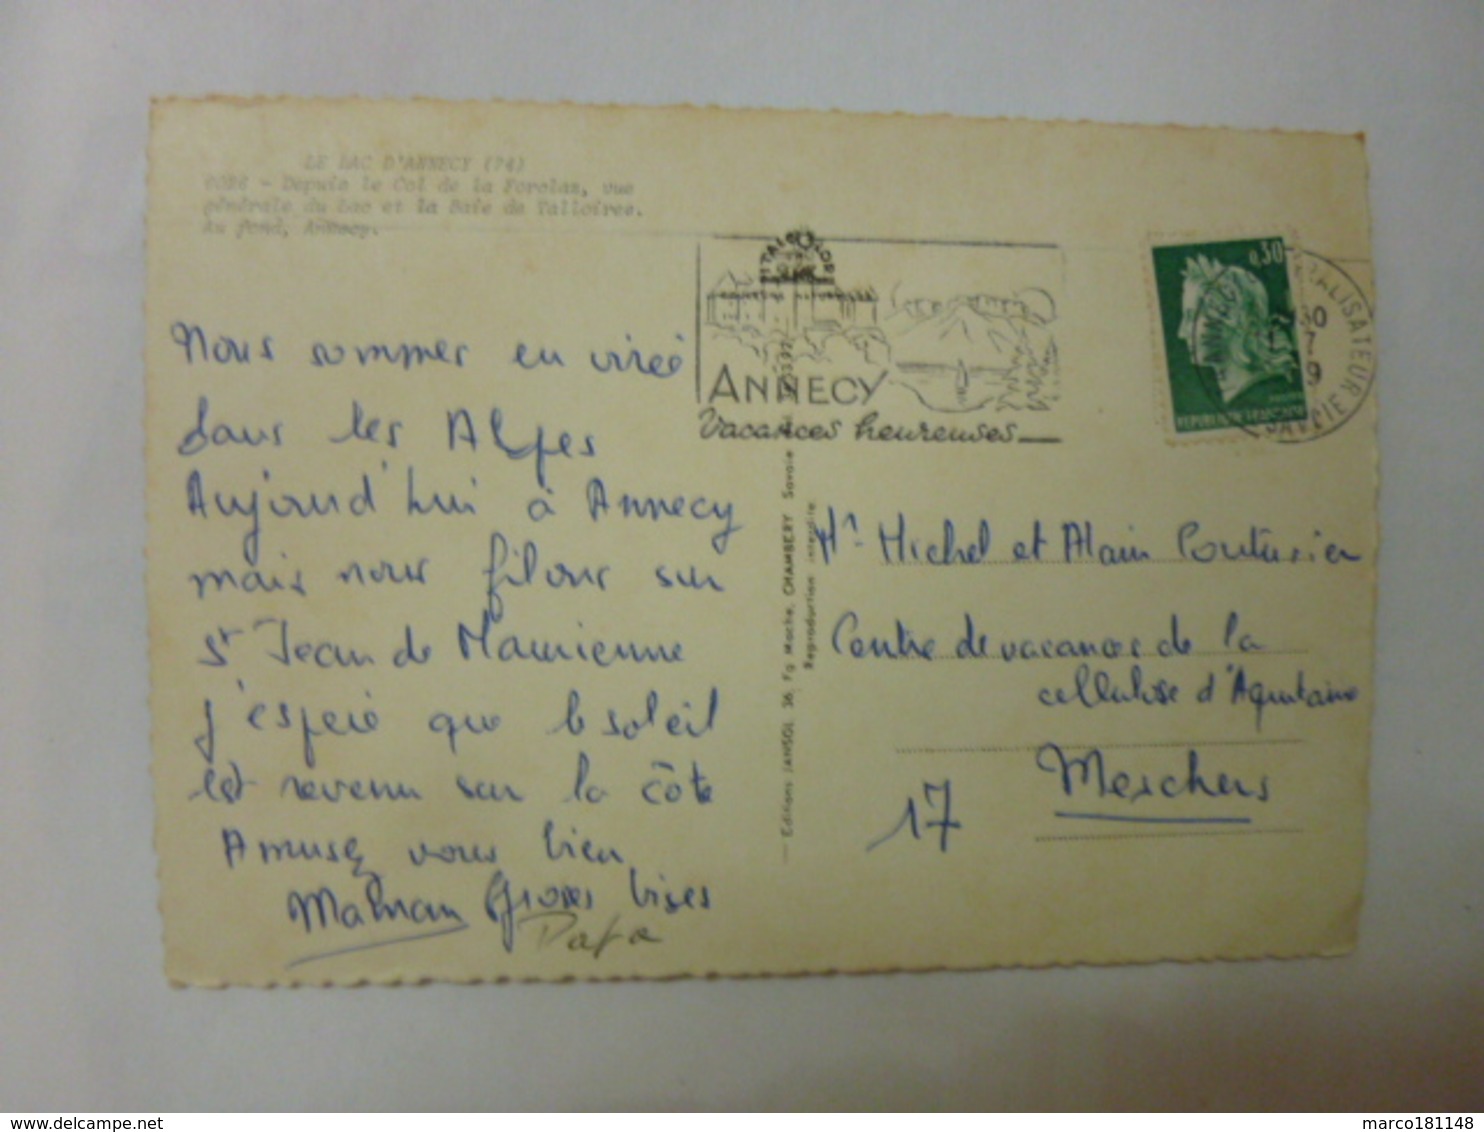 LE LAC D'ANNECY (74)
- Depuis le Col de la Forclaz, vue
générale du Lac et la Baie de Talloires.
Au fond, Annecy.
Nous sommes en virée
dans les Alpes
Aujourd'hui à Annecy
mais nous filons sur
St Jean de Maurienne
j'espère que le soleil
est revenu sur la côte
Amusez vous bien
Maman Grosses bises
Papa
ANNECY
Vacances heureuses
Editions JANSOL 36, Fg Mache, CHAMBERY Savoie
Reproduction interdite
0,30
REPUBLIQUE FRANCAISE
ANNECY CENTRALISATEUR
SAVOIE
Mrs Michel et Alain
Centre de vacances de la
cellulose d'Aquitaine
17 Meschers
marco181148